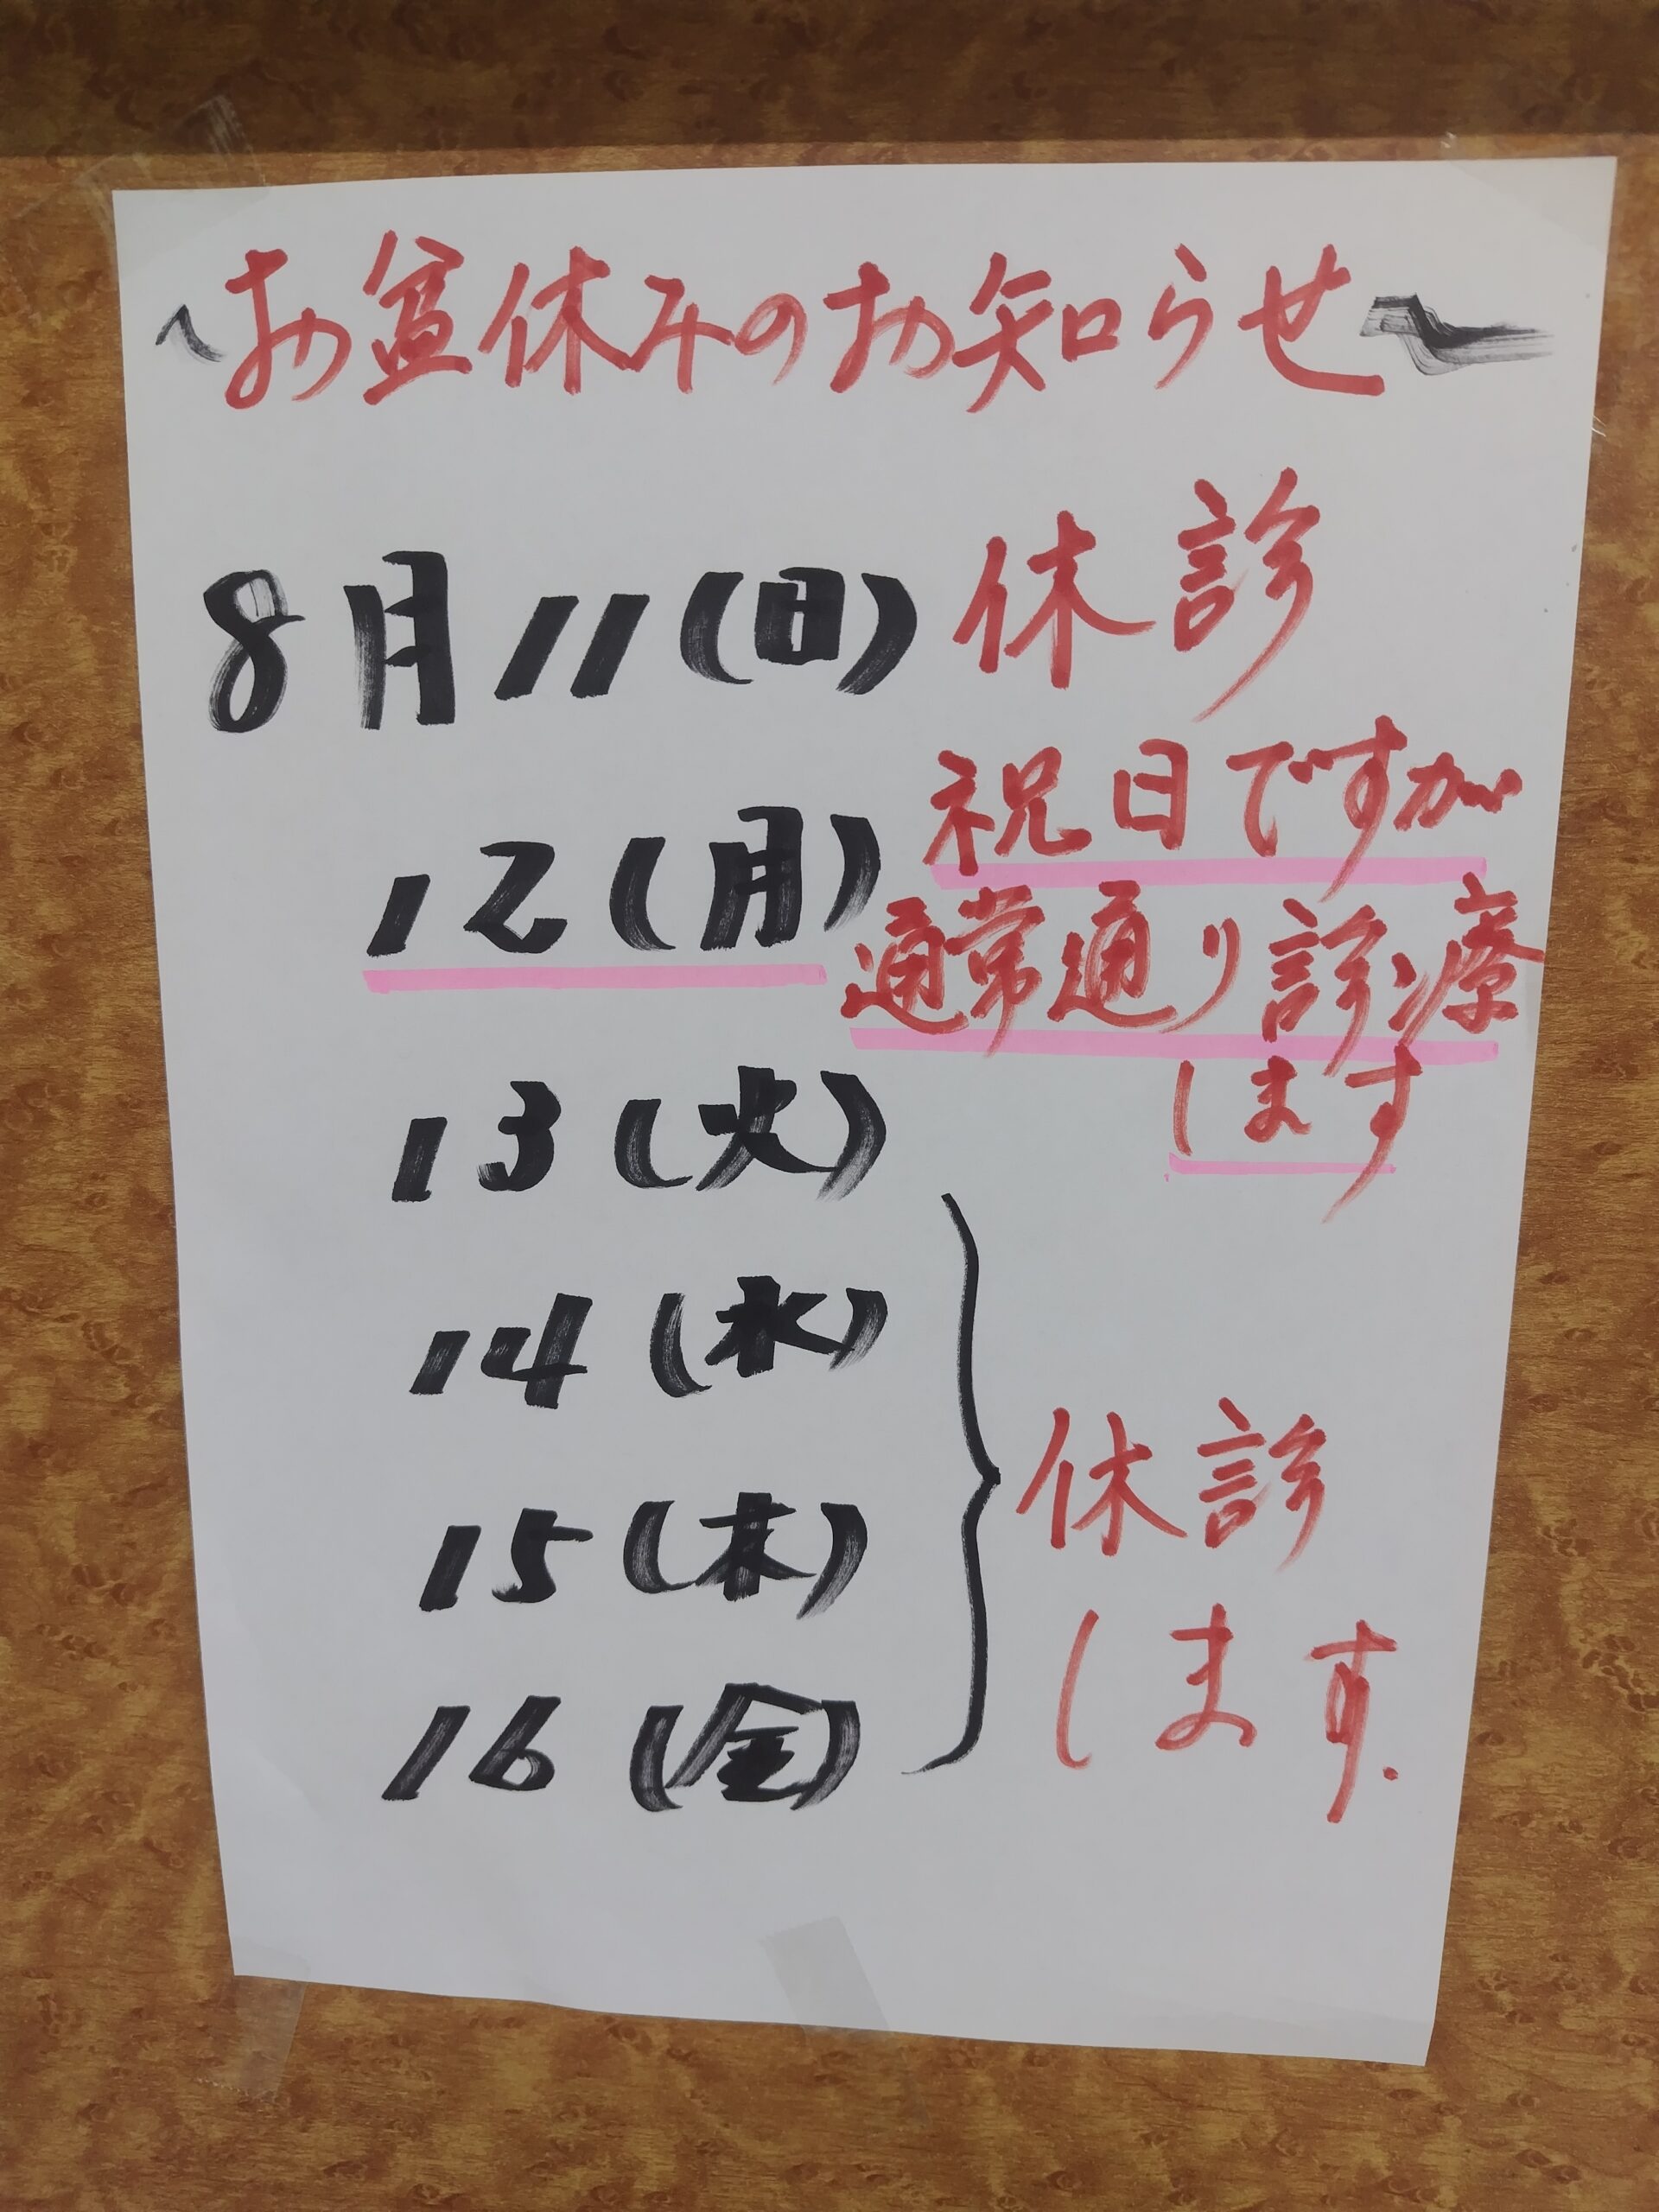 〜お盆休みのお知らせ〜
8月11(日) 休診
12(月) 祝日ですが
通常通り診療
します
13(火)
14(水)
15(木)
16(金)
休診
します.